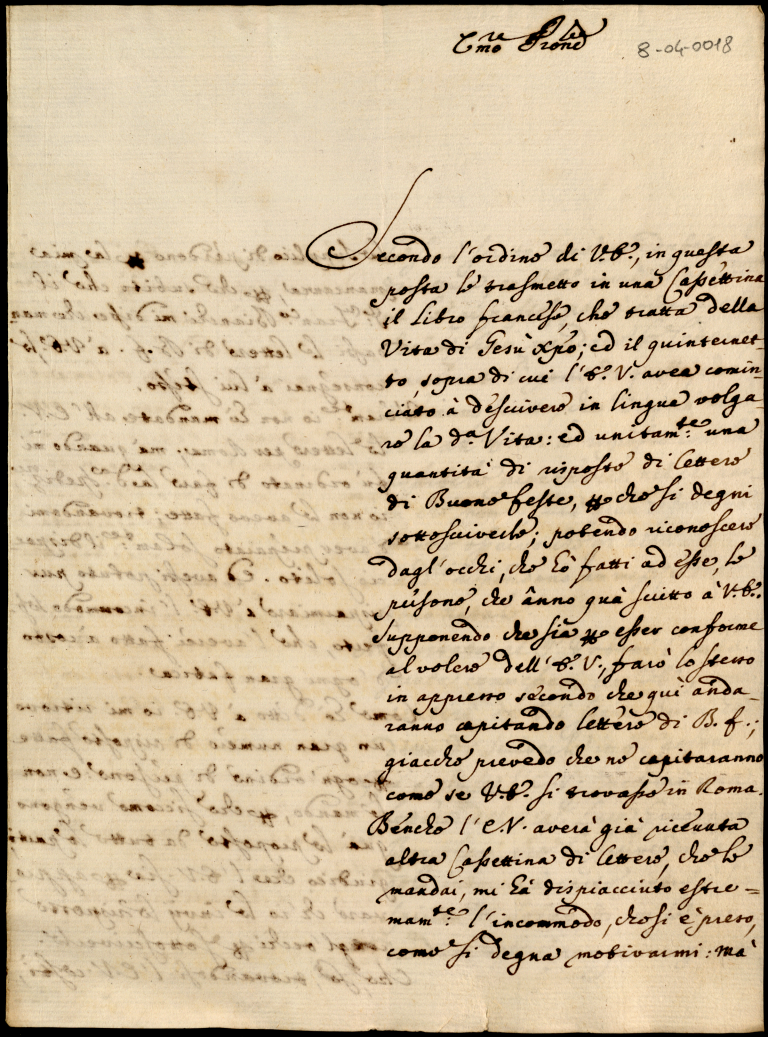 Em̃o Prone
8-04-0018
Secondo l'ordine di V.E., in questa
posta le trasmetto in una Cassettina
il Libro francese, che tratta della
Vita di Gesù Xpo; ed il quinternet-
to, sopra di cui l'E. V. avea comin-
ciato à descivere in lingua volga-
re la da Vita: ed unitamte: una
quantità di risposte di lettere
di Buone feste, che si degni
sottoscriverle; potendo riconoscere
dagl'occhi, che hò fatti ad esse, le
persone, che ànno quà scritto à V.E.
Supponendo che sia esser conforme
al volere dell'E. V., farò lo stesso
in appresso secondo che quì anda-
ranno capitando lettere di B. f.;
giacche prevedo che ne capitaranno
come se V.E. si trovasse in Roma.
Benche l'E.V. averà già ricevuta
altra Cassettina di lettere, che le
mandai, mi hà dispiacciuto estre=
mamte: l'incommodo, che si è preso,
come si degna motivarmi: mà